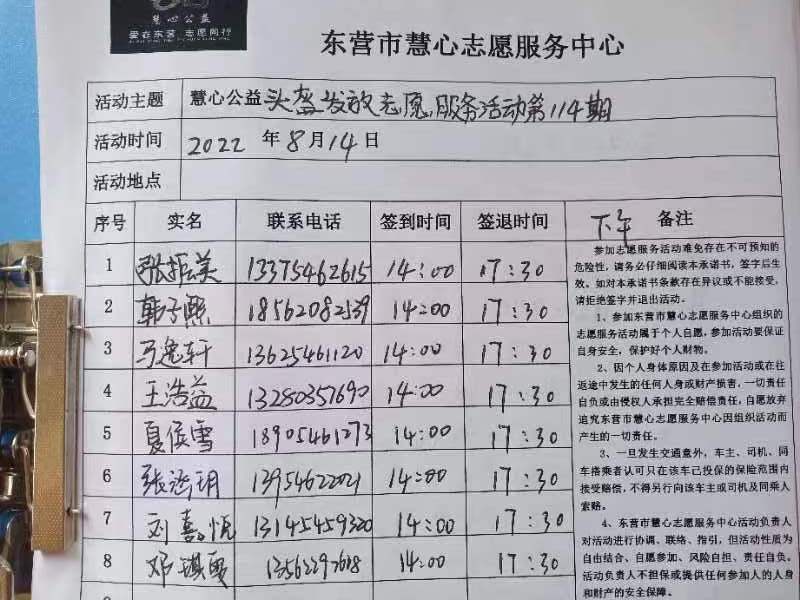 慧心公益
爱在东营 志愿同行
东营市慧心志愿服务中心
活动主题 慧心公益头盔发放志愿服务活动第114期
活动时间 2022 年 8 月 14 日
活动地点
序号 实名 联系电话 签到时间 签退时间 下午 备注
1 张振美 13375462615 14:00 17:30
2 韩子熙 18562082539 14:00 17:30
3 马逸轩 13625461120 14:00 17:30
4 王浩益 13280357690 14:00 17:30
5 夏侯雪 18905461273 14:00 17:30
6 张 玥 13954622021 14:00 17:30
7 刘喜悦 13145459320 14:00 17:30
8 邓琪 13562297618 14:00 17:30
参加志愿服务活动难免存在不可预知的
危险性,请务必仔细阅读本承诺书,签字后生
效。如对本承诺书条款存在异议或不能接受,
请拒绝签字并退出活动。
1、参加东营市慧心志愿服务中心组织的
志愿服务活动属于个人自愿,参加活动要保证
自身安全,保护好个人财物。
2、因个人身体原因及在参加活动或在往
返途中发生的任何人身或财产损害,一切责任
自负或由侵权人承担完全赔偿责任,自愿放弃
追究东营市慧心志愿服务中心因组织活动而
产生的一切责任。
3、一旦发生交通意外,车主、司机、同
车搭乘者认可只在该车已投保的保险范围内
接受赔偿,不得另行向该车主或司机及同乘人
索赔。
4、东营市慧心志愿服务中心活动负责人
对活动进行协调、联络、指引,但活动性质为
自由结合、自愿参加、风险自担、责任自负。
活动负责人不担保或提供任何参加人的人身
和财产的安全保障。